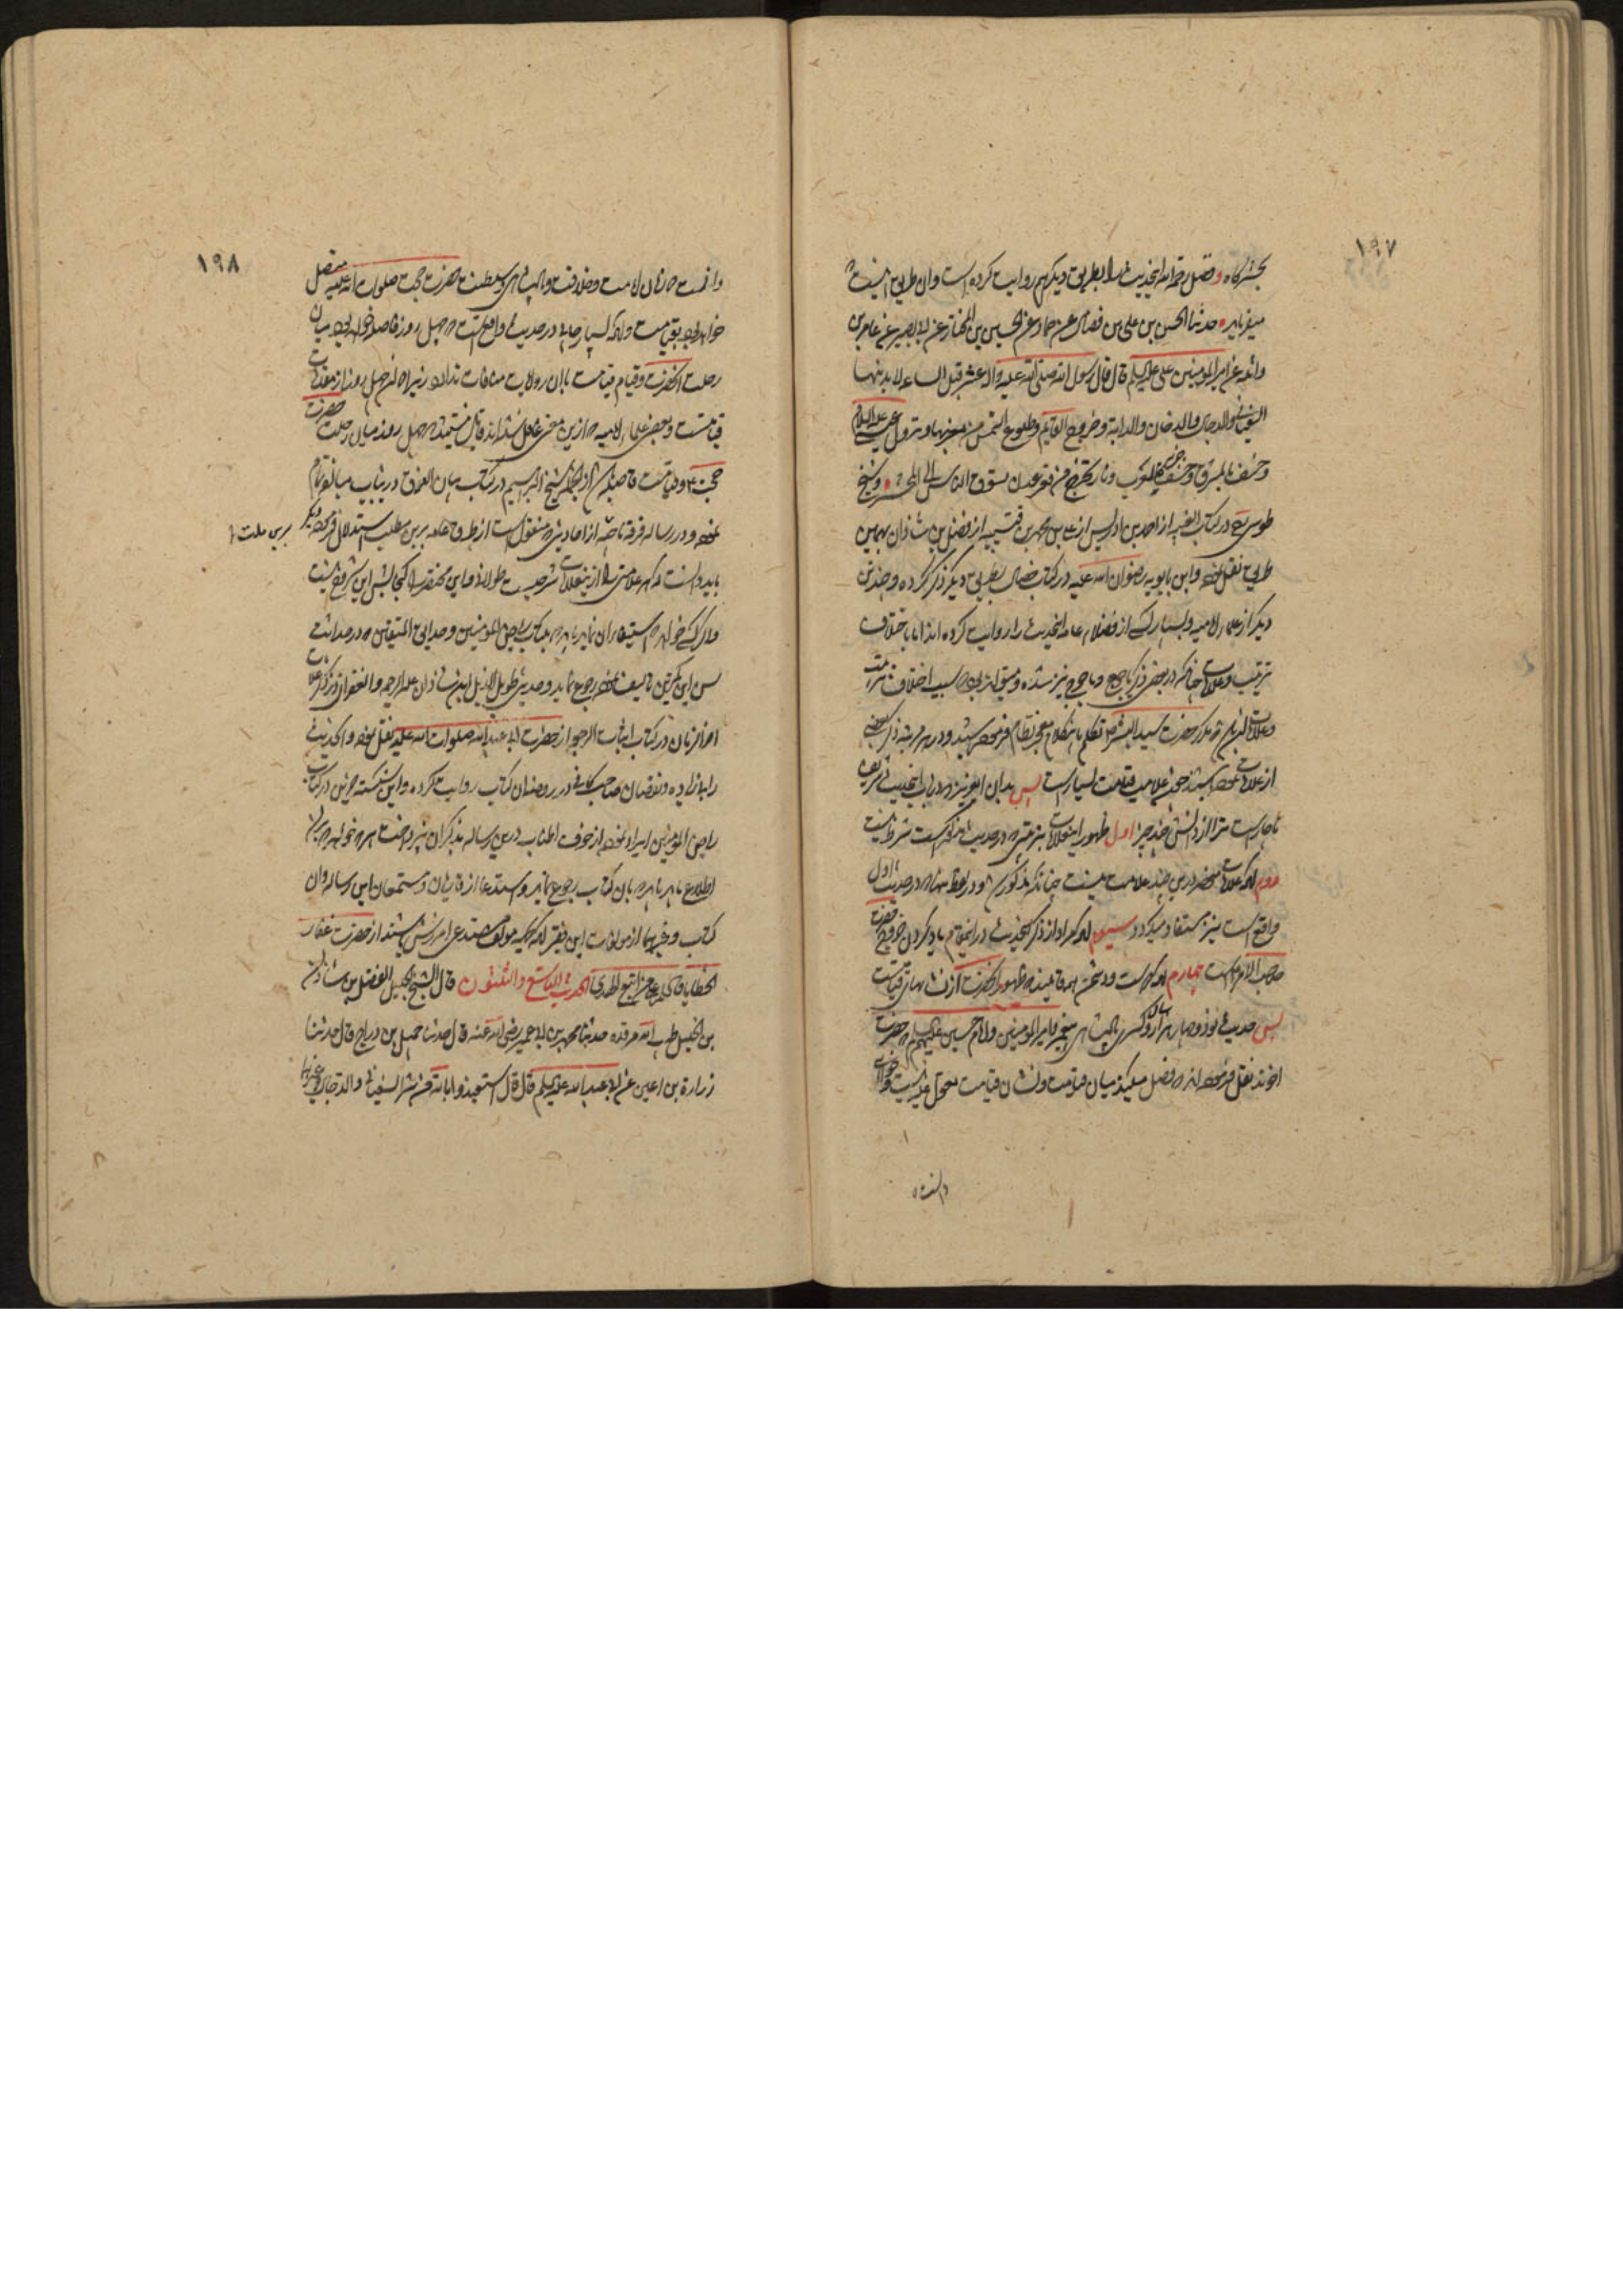 ۱۹۷
بحشرگاه و فضل رحمه الله اینحدیث را بطریق دیگر هم روایت کرده است و ان طریق اینست
میفرماید حدثنا الحسن بن علی بن فضال عن حماد عن الحسین بن المختار عن ابی بصیر عن عامر بن
واثله عن امیر المؤمنین علی علیه السلم قال قال رسول الله صلی الله علیه واله عشر قبل الساعه لا بد منها
السفیانی والدجال والدخان والدابة وخروج القایم وطلوع الشمس من مغربها ونزول عیسی علیه السلام
وخسف بالمشرق وخسف بجزیرة العرب ونار تخرج من قعر عدن تسوق الناس الی المحشر و شیخ
طوسی در کتاب الغیبه از احمد بن ادریس از علی بن محمد بن قتیبه از فضل بن شاذان بهمین
طریق نقل نموده و ابن بابویه رضوان الله علیه در کتاب خصال بطریق دیگر ذکر کرده و چندین
دیگر از علماء امامیه و بسیاری از فضلاء عامه اینحدیث را روایت کرده اند اما باختلاف
ترتیب و علامات چنانکه در بعضی ذکر یاجوج و ماجوج نیز شده و میتواند بود که سبب اختلاف ترتیب
و علامات ان باشد که مکرر حضرت سید البشر تکلم باینکلام معجز نظام فرموده باشند و در هر مرتبه ذکر بعضی
از علامات نموده باشند چه علامت قیامت بسیار است پس بدان ایعزیز که در باب اینحدیث شریف
ناچار است ترا از دانستن چند چیز اول ظهور اینعلامات بترتیبی که در حدیث مذکور است شرط نیست
دوم انکه علامات منحصر در این چند علامت نیست چنانکه مذکور شد و در لفظ منها که در حدیث اول
واقع است نیز مستفاد میگردد سیوم انکه مراد از ذکر اینحدیث در اینمقام یاد کردن خروج حضرت
صاحب الامر است چهارم انکه دوست و دشمن همه قایلند که ظهور انحضرت از نشانهای قیامت است
پس حدیث نود و چهار هزار سال و کسری پادشاهی پیغمبر و امیر المؤمنین و امام حسین علیهم السلم که حضرت
اخوند نقل فرموده اند که فصل میکند میان قیامت و نشان قیامت معمول علیه نیست و
دانسته
۱۹۸
دانست که زمان امامت و خلافت و پادشاهی و سلطنت حضرت حجت صلوات الله علیه متصل
خواهد بود بقیامت و انکه بسیار جاها در حدیث واقع است که چهل روز فاصله خواهد بود میان
رحلت انحضرت و قیام قیامت با ان روایات منافات ندارد زیرا که ان چهل روز از مقدمات
قیامتست و بعضی علماء امامیه که ازین معنی غافل شده اند قایل نیستند که چهل روز میان رحلت حضرت
حجت و قیامت فاصله باشد از انجمله شیخ ابراهیم در کتاب بیان الفرق در ینباب مبالغه تمام
نموده و در رساله فرقه ناجیه از احادیثی که منقول است از طرق عامه برین مطلب استدلال فرموده دیگر
بباید دانست که هر علامتی را ازینعلامات شرحیست طولانی و این مختصر را گنجایش این شروح نیست
و اگر کسی خواهد که استیفاء ان نماید باید که بکتاب ریاض المؤمنین و حدایق المتقین که در حداثت
سن این کمترین تالیف نموده رجوع نماید و حدیثی طویل الذیل ابن شاذان علیه الرحمه و الغفران در ذکر علامات
اخر الزمان در کتاب اثبات الرجعه از حضرت ابی عبد الله صلوات الله علیه نقل نموده و انحدیث
را بازیاده و نقصان صاحب کافی در روضه ان کتاب روایت کرده و این شکسته حزین در کتاب
ریاض المؤمنین ایراد نموده از خوف اطناب درین رساله بذکر ان نپرداخت هر که خواهد که بر ان
اطلاع یابد باید که بان کتاب رجوع نماید و استدعا از قاریان و مستمعان این رساله و ان
کتاب و غیرهما از مؤلفات این فقیر انکه همیشه مستدعی امرزش باشند از حضرت غفار
الخطایا الحدیث التاسع والثلثون قال الشیخ الجلیل الفضل بن شاذان
بن الخلیل طیب الله مرقده حدثنا محمد بن ابی عمیر رضی الله عنه قال حدثنا جمیل بن دراج قال حدثنا
زراره بن اعین عن ابی عبد الله علیه السلم قال قال استعیذوا بالله من شر السفیانی والدجال وغیرهما